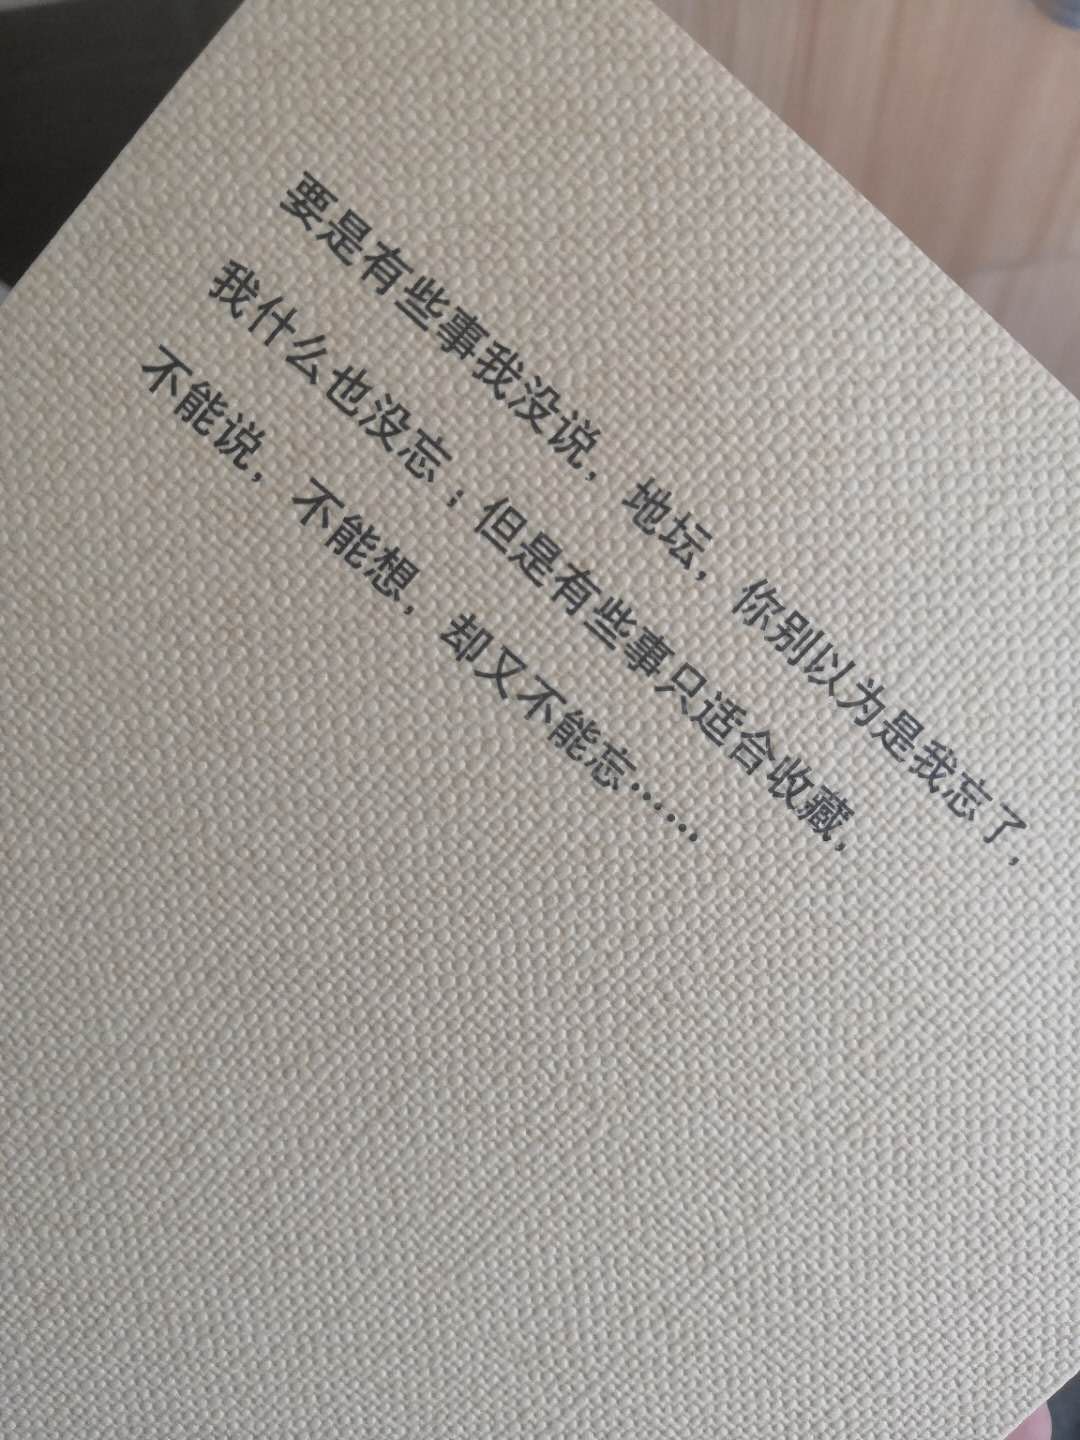 要是有些事我没说，地坛，你别以为是我忘了，
我什么也没忘；但是有些事只适合收藏，
不能说，不能想，却又不能忘……